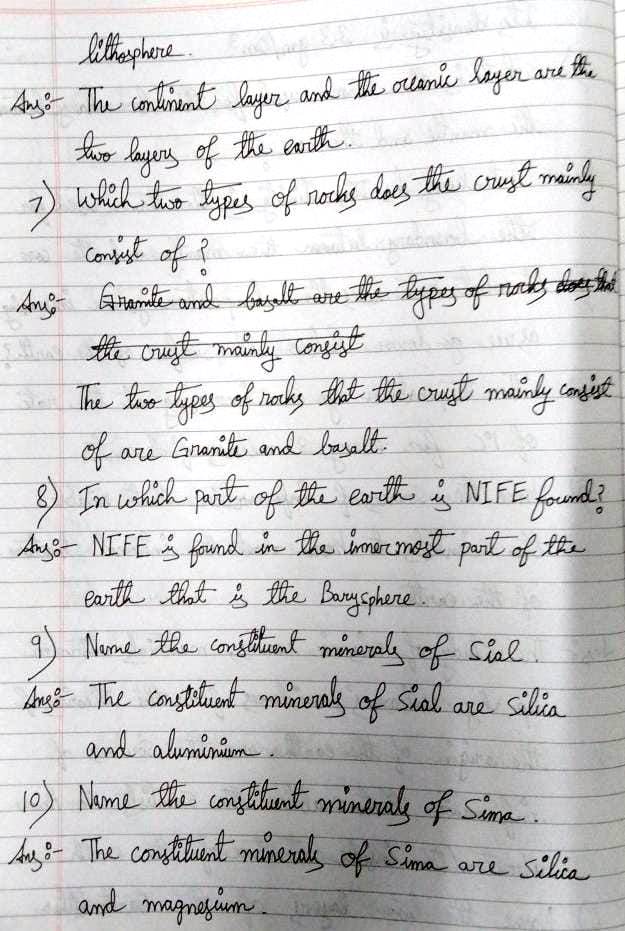 lithosphere.
Ans:- The continent layer and the oceanic layer are the
two layers of the earth.
7) Which two types of rocks does the crust mainly
consist of ?
Ans:- Granite and basalt are the types of rocks does that
the crust mainly consist
The two types of rocks that the crust mainly consist
of are Granite and basalt.
8) In which part of the earth is NIFE found?
Ans:- NIFE is found in the innermost part of the
earth that is the Barysphere.
9) Name the constituent minerals of Sial.
Ans:- The constituent minerals of Sial are Silica
and aluminium.
10) Name the constituent minerals of Sima.
Ans:- The constituent minerals of Sima are Silica
and magnesium.